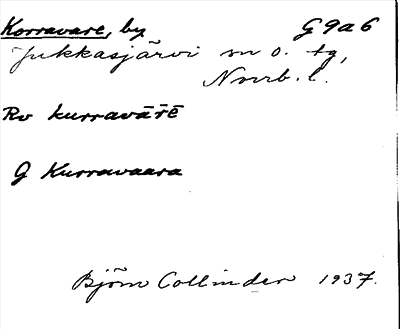 Korravare, by G9a6
Jukkasjärvi sn o. tg,
Norrb. l.
Rv kurravārē
G Kurravaara
Björn Collinder 1937.